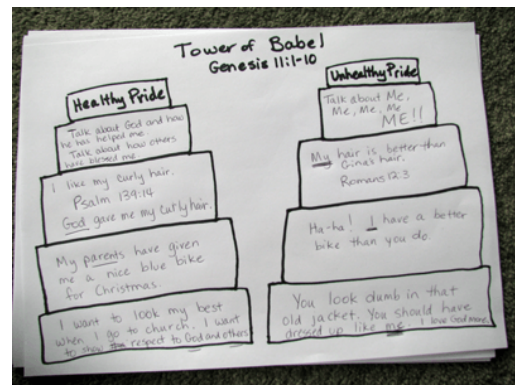 Tower of Babel
Genesis 11:1-10
Healthy Pride
Talk about God and how
he has helped me.
Talk about how others
have blessed me
I like my curly hair.
Psalm 139:14
God gave me my curly hair.
My parents have given
me a nice blue bike
for Christmas.
I want to look my best
when I go to church. I want
to show respect to God and others
Unhealthy Pride
Talk about Me,
Me, Me, Me
ME!!
My hair is better than
Gina's hair.
Romans 12:3
Ha-ha! I have a better
bike than you do.
You look dumb in that
old jacket. You should have
dressed up like me. I love God more.